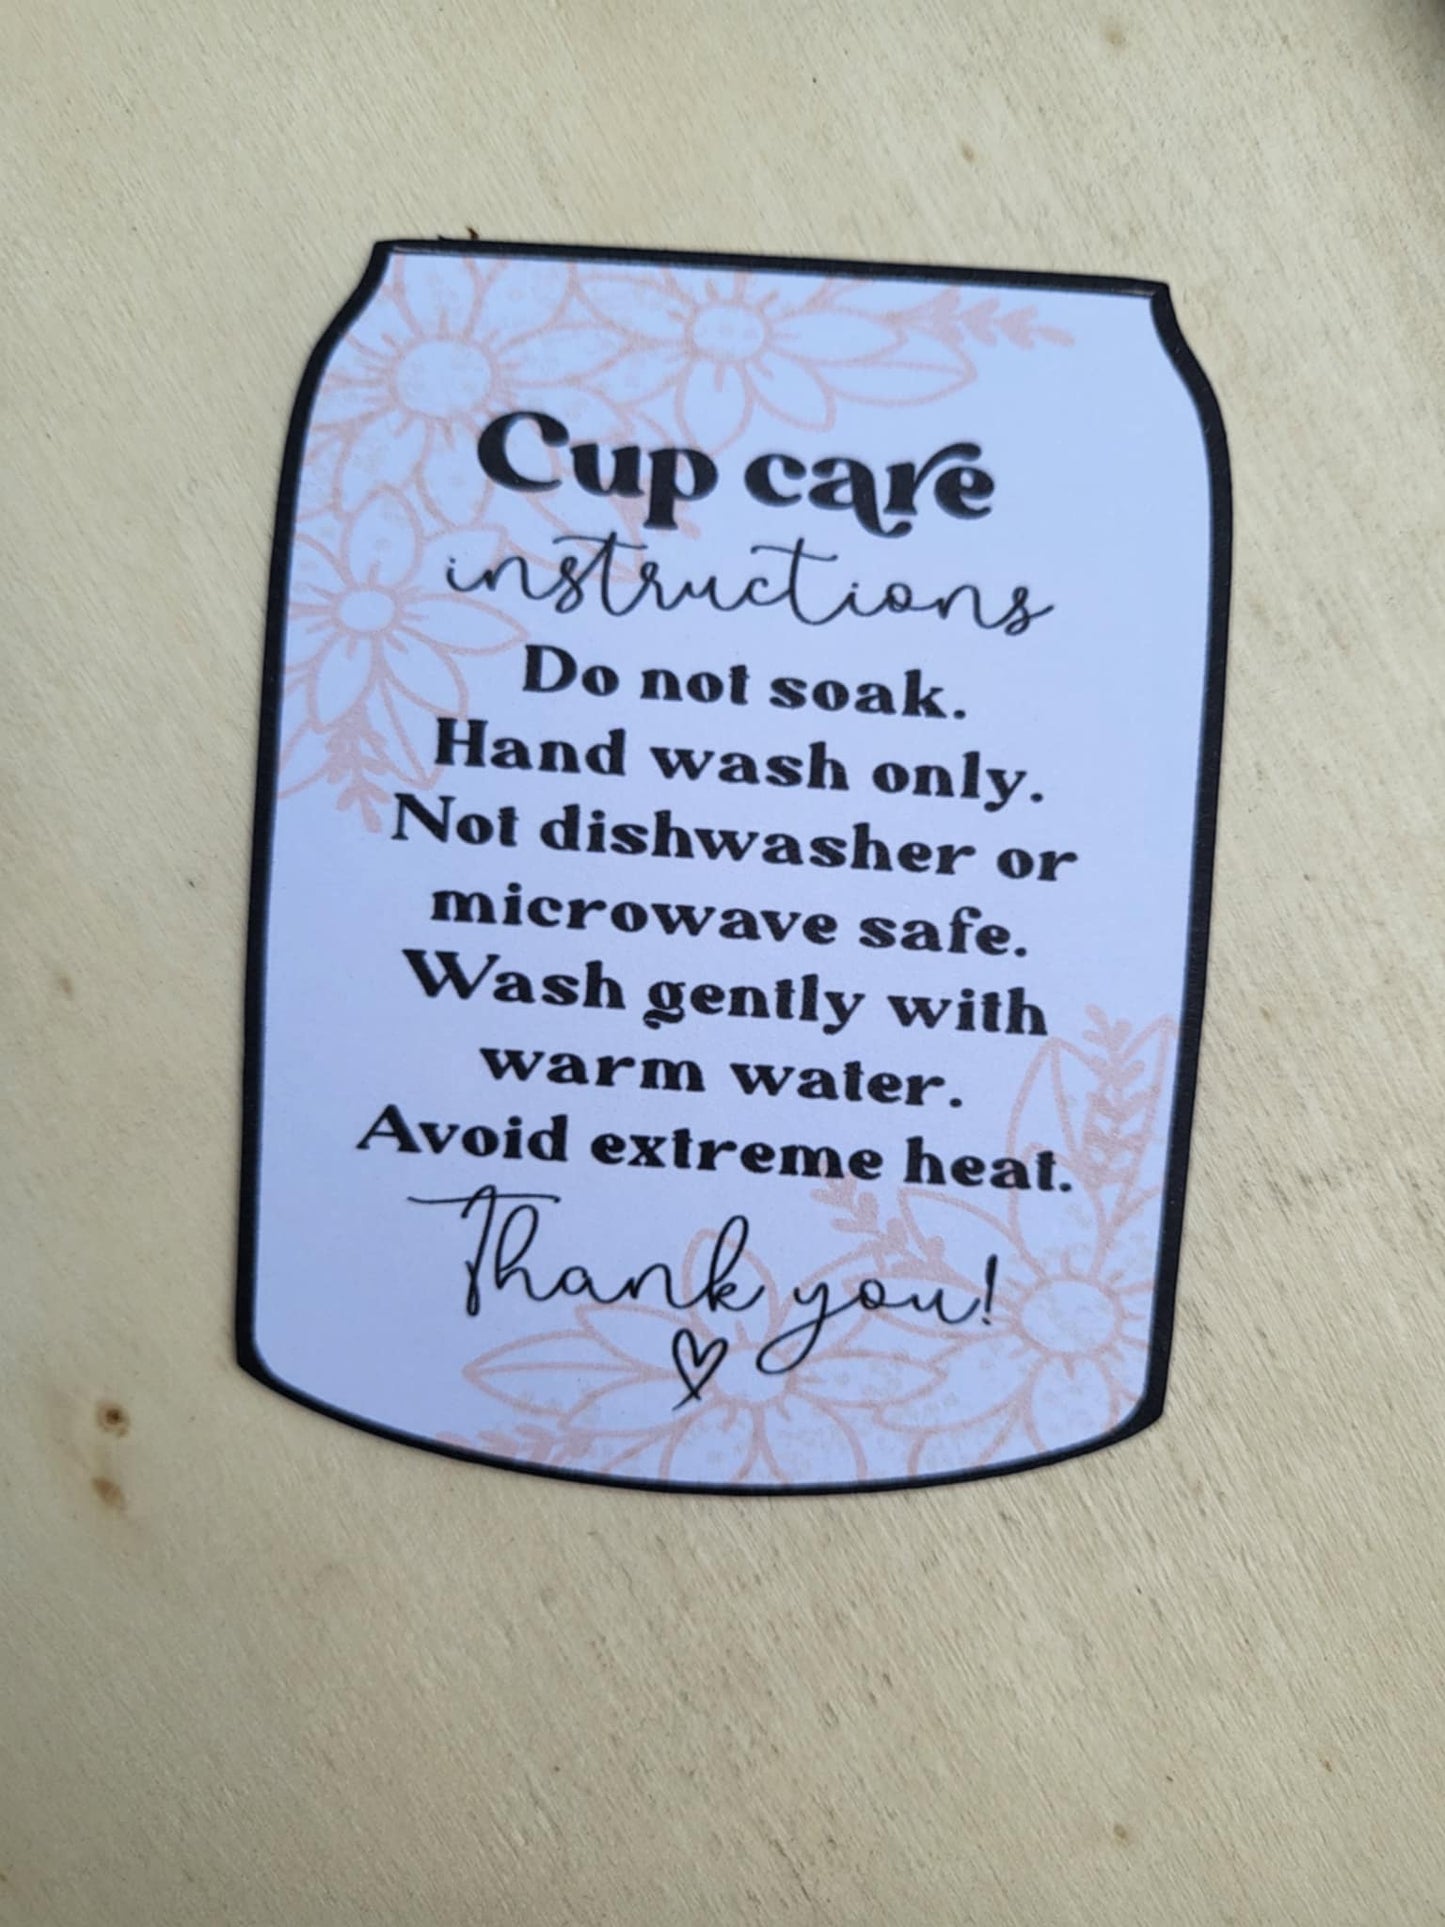 Cup care
instructions
Do not soak.
Hand wash only.
Not dishwasher or
microwave safe.
Wash gently with
warm water.
Avoid extreme heat.
Thank you!